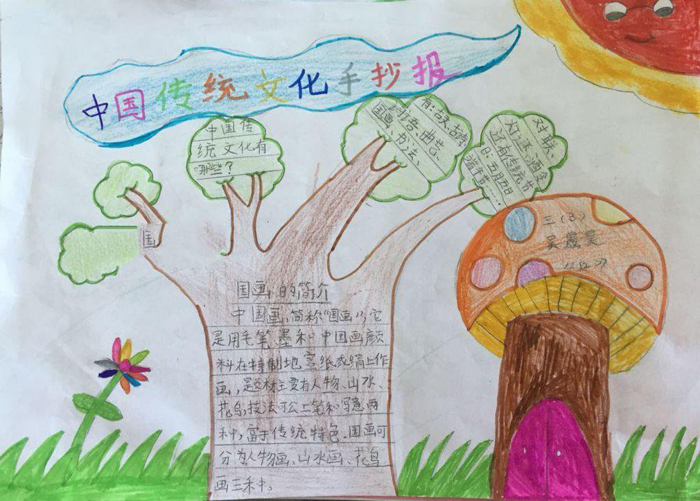 中国传统文化手抄报
中国传
统文化有
哪些？
有：古文、古诗
词语、曲艺、
国画、书法、
对联、
灯谜、酒令
三（3）
国
国画的简介
中国画，简称“国画”，它
是用毛笔、墨和中国画颜
料在特制地宣纸或绢上作
画，题材主要有人物、山水、
花鸟，技法可公上笔和写意两
种，富于传统特色。国画可
分为人物画、山水画、花鸟
画三种。